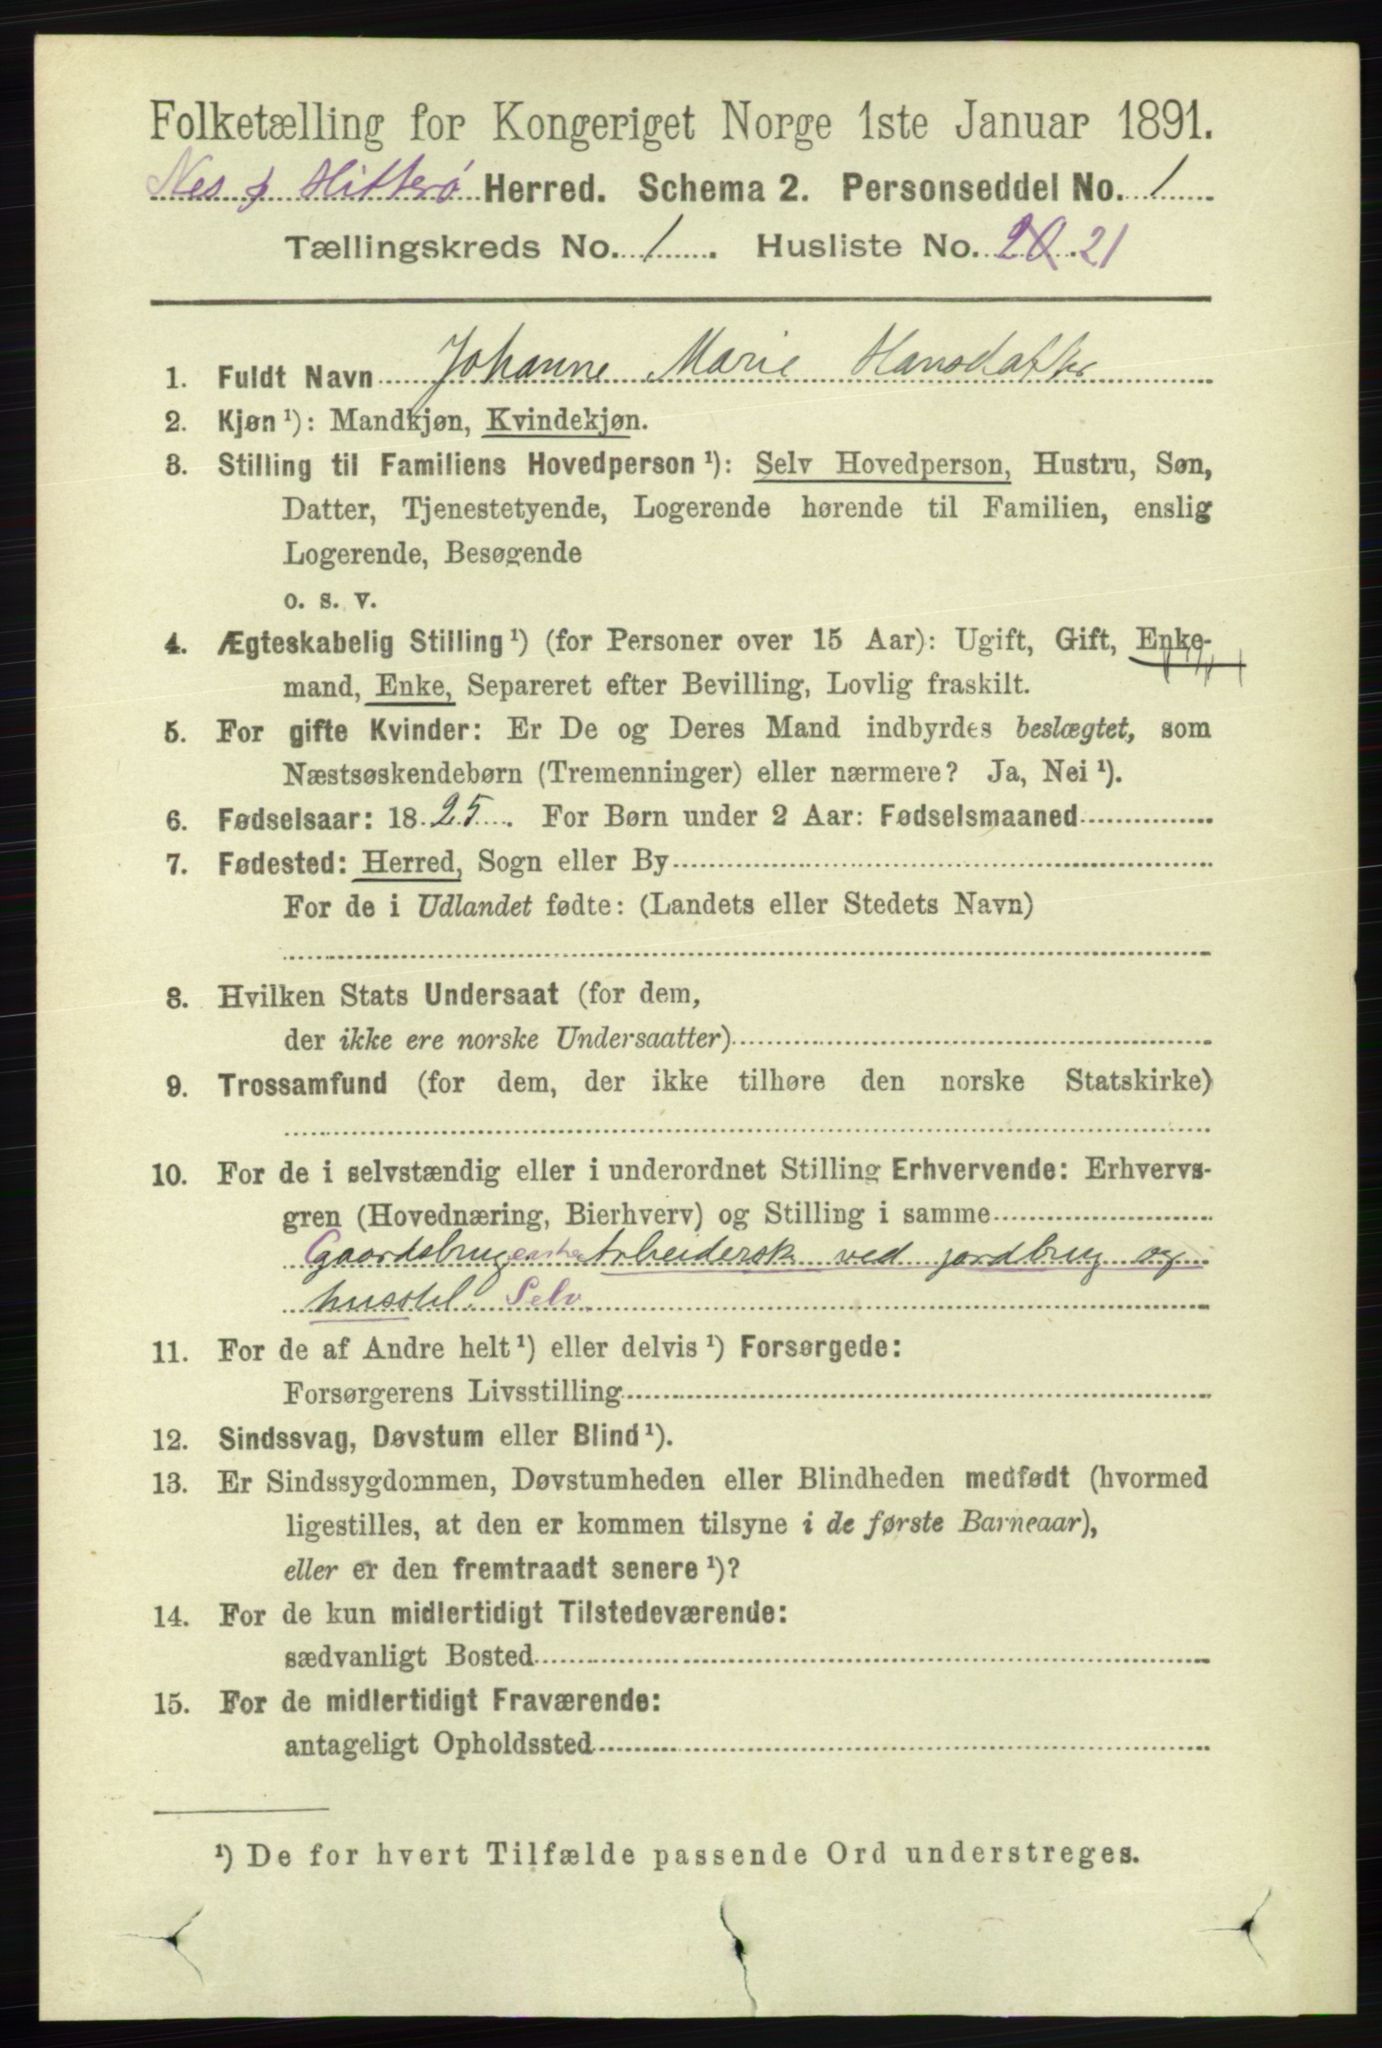 Folketælling for Kongeriget Norge 1ste Januar 1891.
Nes & Hitterø Herred. Schema 2. Personseddel No. 1
Tællingskreds No. 1. Husliste No. 20. 21
1. Fuldt Navn Johanne Marie Hansdatter
2. Kjøn ¹): Mandkjøn, Kvindekjøn.
3. Stilling til Familiens Hovedperson ¹): Selv Hovedperson, Hustru, Søn,
Datter, Tjenestetyende, Logerende hørende til Familien, enslig
Logerende, Besøgende
o. s. v.
4. Ægteskabelig Stilling ¹) (for Personer over 15 Aar): Ugift, Gift, Enke-
mand, Enke, Separeret efter Bevilling, Lovlig fraskilt.
5. For gifte Kvinder: Er De og Deres Mand indbyrdes beslægtet, som
Næstsøskendebørn (Tremenninger) eller nærmere? Ja, Nei ¹).
6. Fødselsaar: 1825. For Børn under 2 Aar: Fødselsmaaned
7. Fødested: Herred, Sogn eller By
For de i Udlandet fødte: (Landets eller Stedets Navn)
8. Hvilken Stats Undersaat (for dem,
der ikke ere norske Undersaatter)
9. Trossamfund (for dem, der ikke tilhøre den norske Statskirke)
10. For de i selvstændig eller i underordnet Stilling Erhvervende: Erhvervs-
gren (Hovednæring, Bierhverv) og Stilling i samme
Gaardsbrug Arbeidersk ved jordbrug og
husstel. Selv.
11. For de af Andre helt ¹) eller delvis ¹) Forsørgede:
Forsørgerens Livsstilling
12. Sindssvag, Døvstum eller Blind ¹).
13. Er Sindssygdommen, Døvstumheden eller Blindheden medfødt (hvormed
ligestilles, at den er kommen tilsyne i de første Barneaar),
eller er den fremtraadt senere ¹)?
14. For de kun midlertidigt Tilstedeværende:
sædvanligt Bosted
15. For de midlertidigt Fraværende:
antageligt Opholdssted
¹) De for hvert Tilfælde passende Ord understreges.